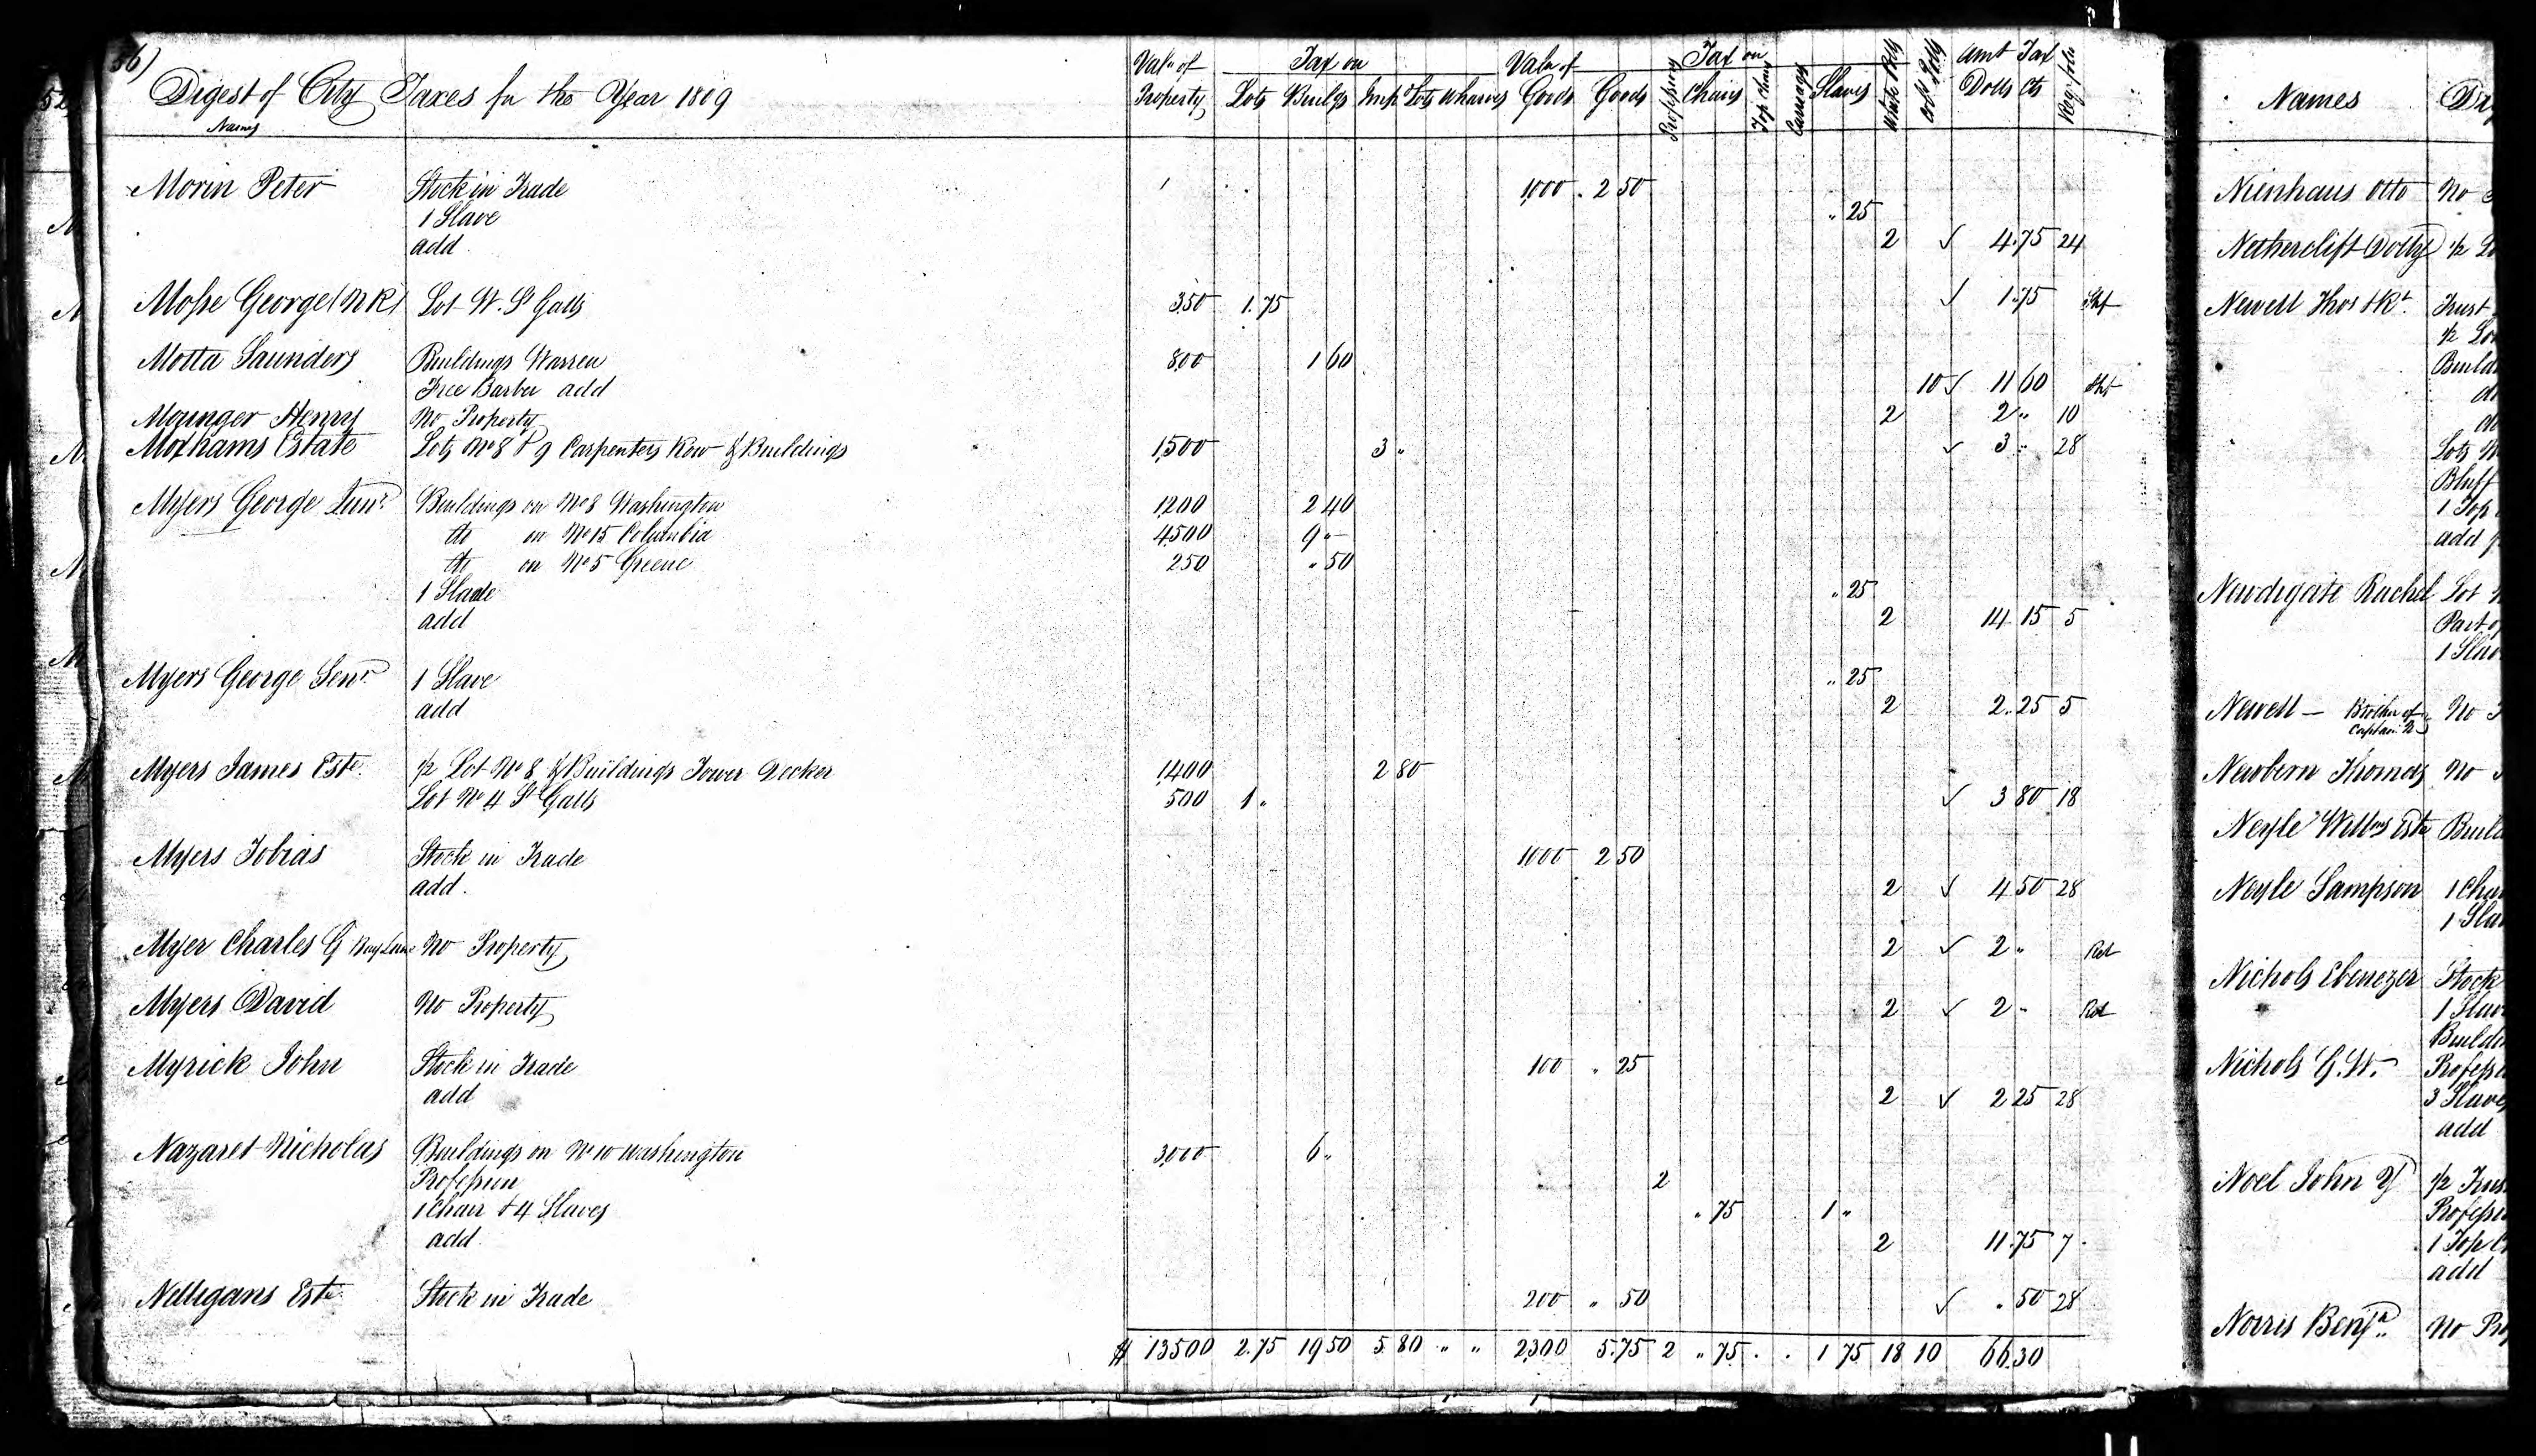 56)
Digest of City Taxes for the Year 1809
Names
Value of Property Tax on Lots Buildgs Imp.d Lots Wharves Value of Goods Goods Professions Tax on Chairs Top Chairs Carriages Slaves White Polls Col.d Polls Amt Tax Dolls Cts
Morin Peter Stock in Trade 1000 . 2 50
1 Slave .. 25
add 2 ✓ 4.75 24
Mosse George (N R) Lot W. St Galls 350 1.75 ✓ 1.75
Motta Saunders Buildings Warren 800 1 60
Free Barber add 10 ✓ 11 60
Mounger Henry No Property 2 2 .. 10
Moxhams Estate Lots No 8 & 9 Carpenters Row & Buildings 1500 3 .. ✓ 3 .. 28
Myers George Junr. Buildings on No 8 Washington 1200 2 40
do on No 15 Columbia 4500 9 ..
do on No 5 Greene 250 .. 50
1 Slave .. 25
add 2 14 15 5
Myers George Senr. 1 Slave .. 25
add 2 2..25 5
Myers James Este. 1/2 Lot No 8 & Buildings Tower Decker 1400 2 80
Lot No 4 St Galls 500 1 .. ✓ 3 80 18
Myers Tobias Stock in Trade 1000 2 50
add. 2 ✓ 4 50 28
Myer Charles G Bay Lane No Property 2 ✓ 2 .. Ret
Myers David No Property 2 ✓ 2 .. Ret
Myrick John Stock in Trade 100 .. 25
add 2 ✓ 2 25 28
Nazaret Nicholas Buildings on No 10 Washington 3000 6 ..
Profession 2
1 Chair & 4 Slaves .. 75 1 ..
add. 2 11.75 7
Nelligans Este. Stock in Trade 200 .. 50 ✓ .. 50 28
$ 13500 2.75 19 50 5 80 .. .. 2300 5.75 2 .. 75 . . 1 75 18 10 66 30
Names
Nienhaus Otto No
Netherclift Dolly 1/2 Lo
Newell Thos & Rt. Trust
1/2 Lo
Build
Lots
Bluff
1 Top
add
Newdigate Rachel Lot
Part of
1 Slav
Newell — Brother of Captain N No
Newbern Thomas No
Neyle Willms Este Build
Neyle Sampson 1 Chai
1 Slav
Nichols Ebenezer Stock
1 Slav
Buildi
Nichols G.W. Professi
3 Slaves
add
Noel John Y 1/2 Trus
Professi
1 Top C
add
Norris Benja. No Pro